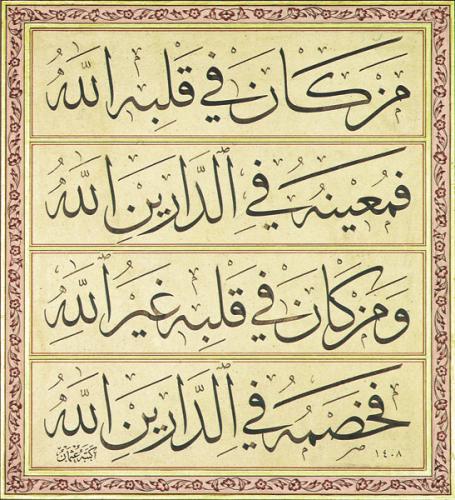 من كان في قلبه الله
فمعينه في الدارين الله
ومن كان في قلبه غير الله
فخصمه في الدارين الله
كتبه عثمان
١٤٠٨